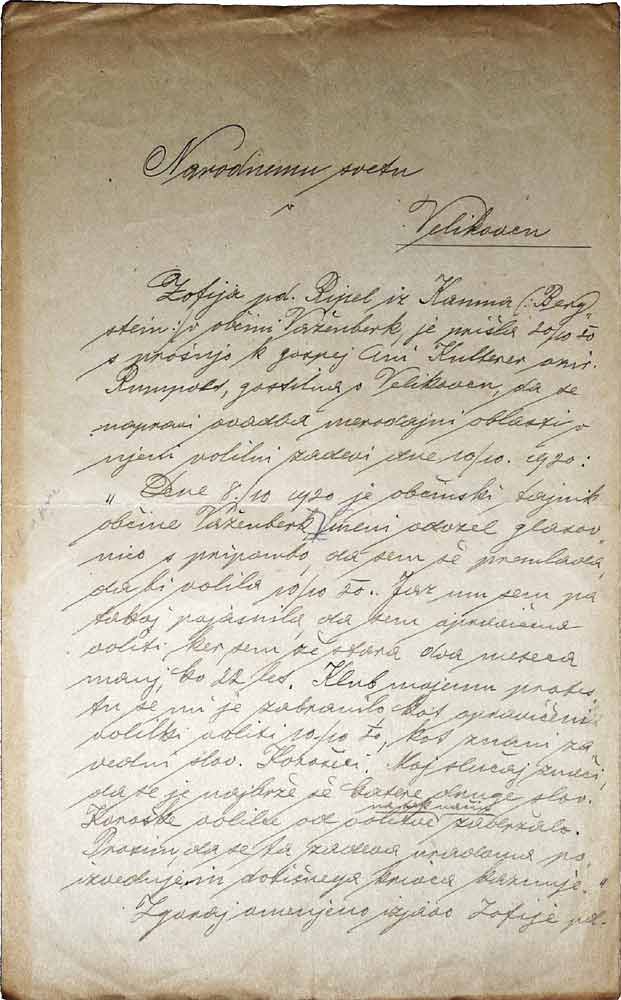 Narodnemu svetu
v
Velikovcu
Zofija pd. Ripel iz Kamna (: Berg„
stein :) v občini Važenberk, je prišla 20/10 20
s prošnjo k gospej Ani Kulterer omž.
Rumpold, gostilna v Velikovcu, da se
napravi ovadba merodajni oblasti v
njeni volilni zadevi dne 10/10. 1920:
„Dne 8./10 1920 je občinski tajnik
občine Važenberk meni odvzel glasov„
nico s pripombo, da sem še premlada,
da bi volila 10/10 20. Jaz mu sem pa
takoj pojasnila, da sem opravičena
voliti, ker sem že stara dva meseca
manj ko 22 let. Kljub mojemu protes„
tu se mi je zabranilo kot opravičeni
volilki voliti 10/10 20, kot znani za„
vedni slov. Korošici. Moj slučaj znači,
da se je najbrže še katere druge slov.
na tak način
Koroške volilke od volitve zadržalo.
Prosim, da se ta zadeva uradoma po„
izveduje in dotičnega krivca kaznuje."
Zgoraj omenjeno izjavo Zofije pd.